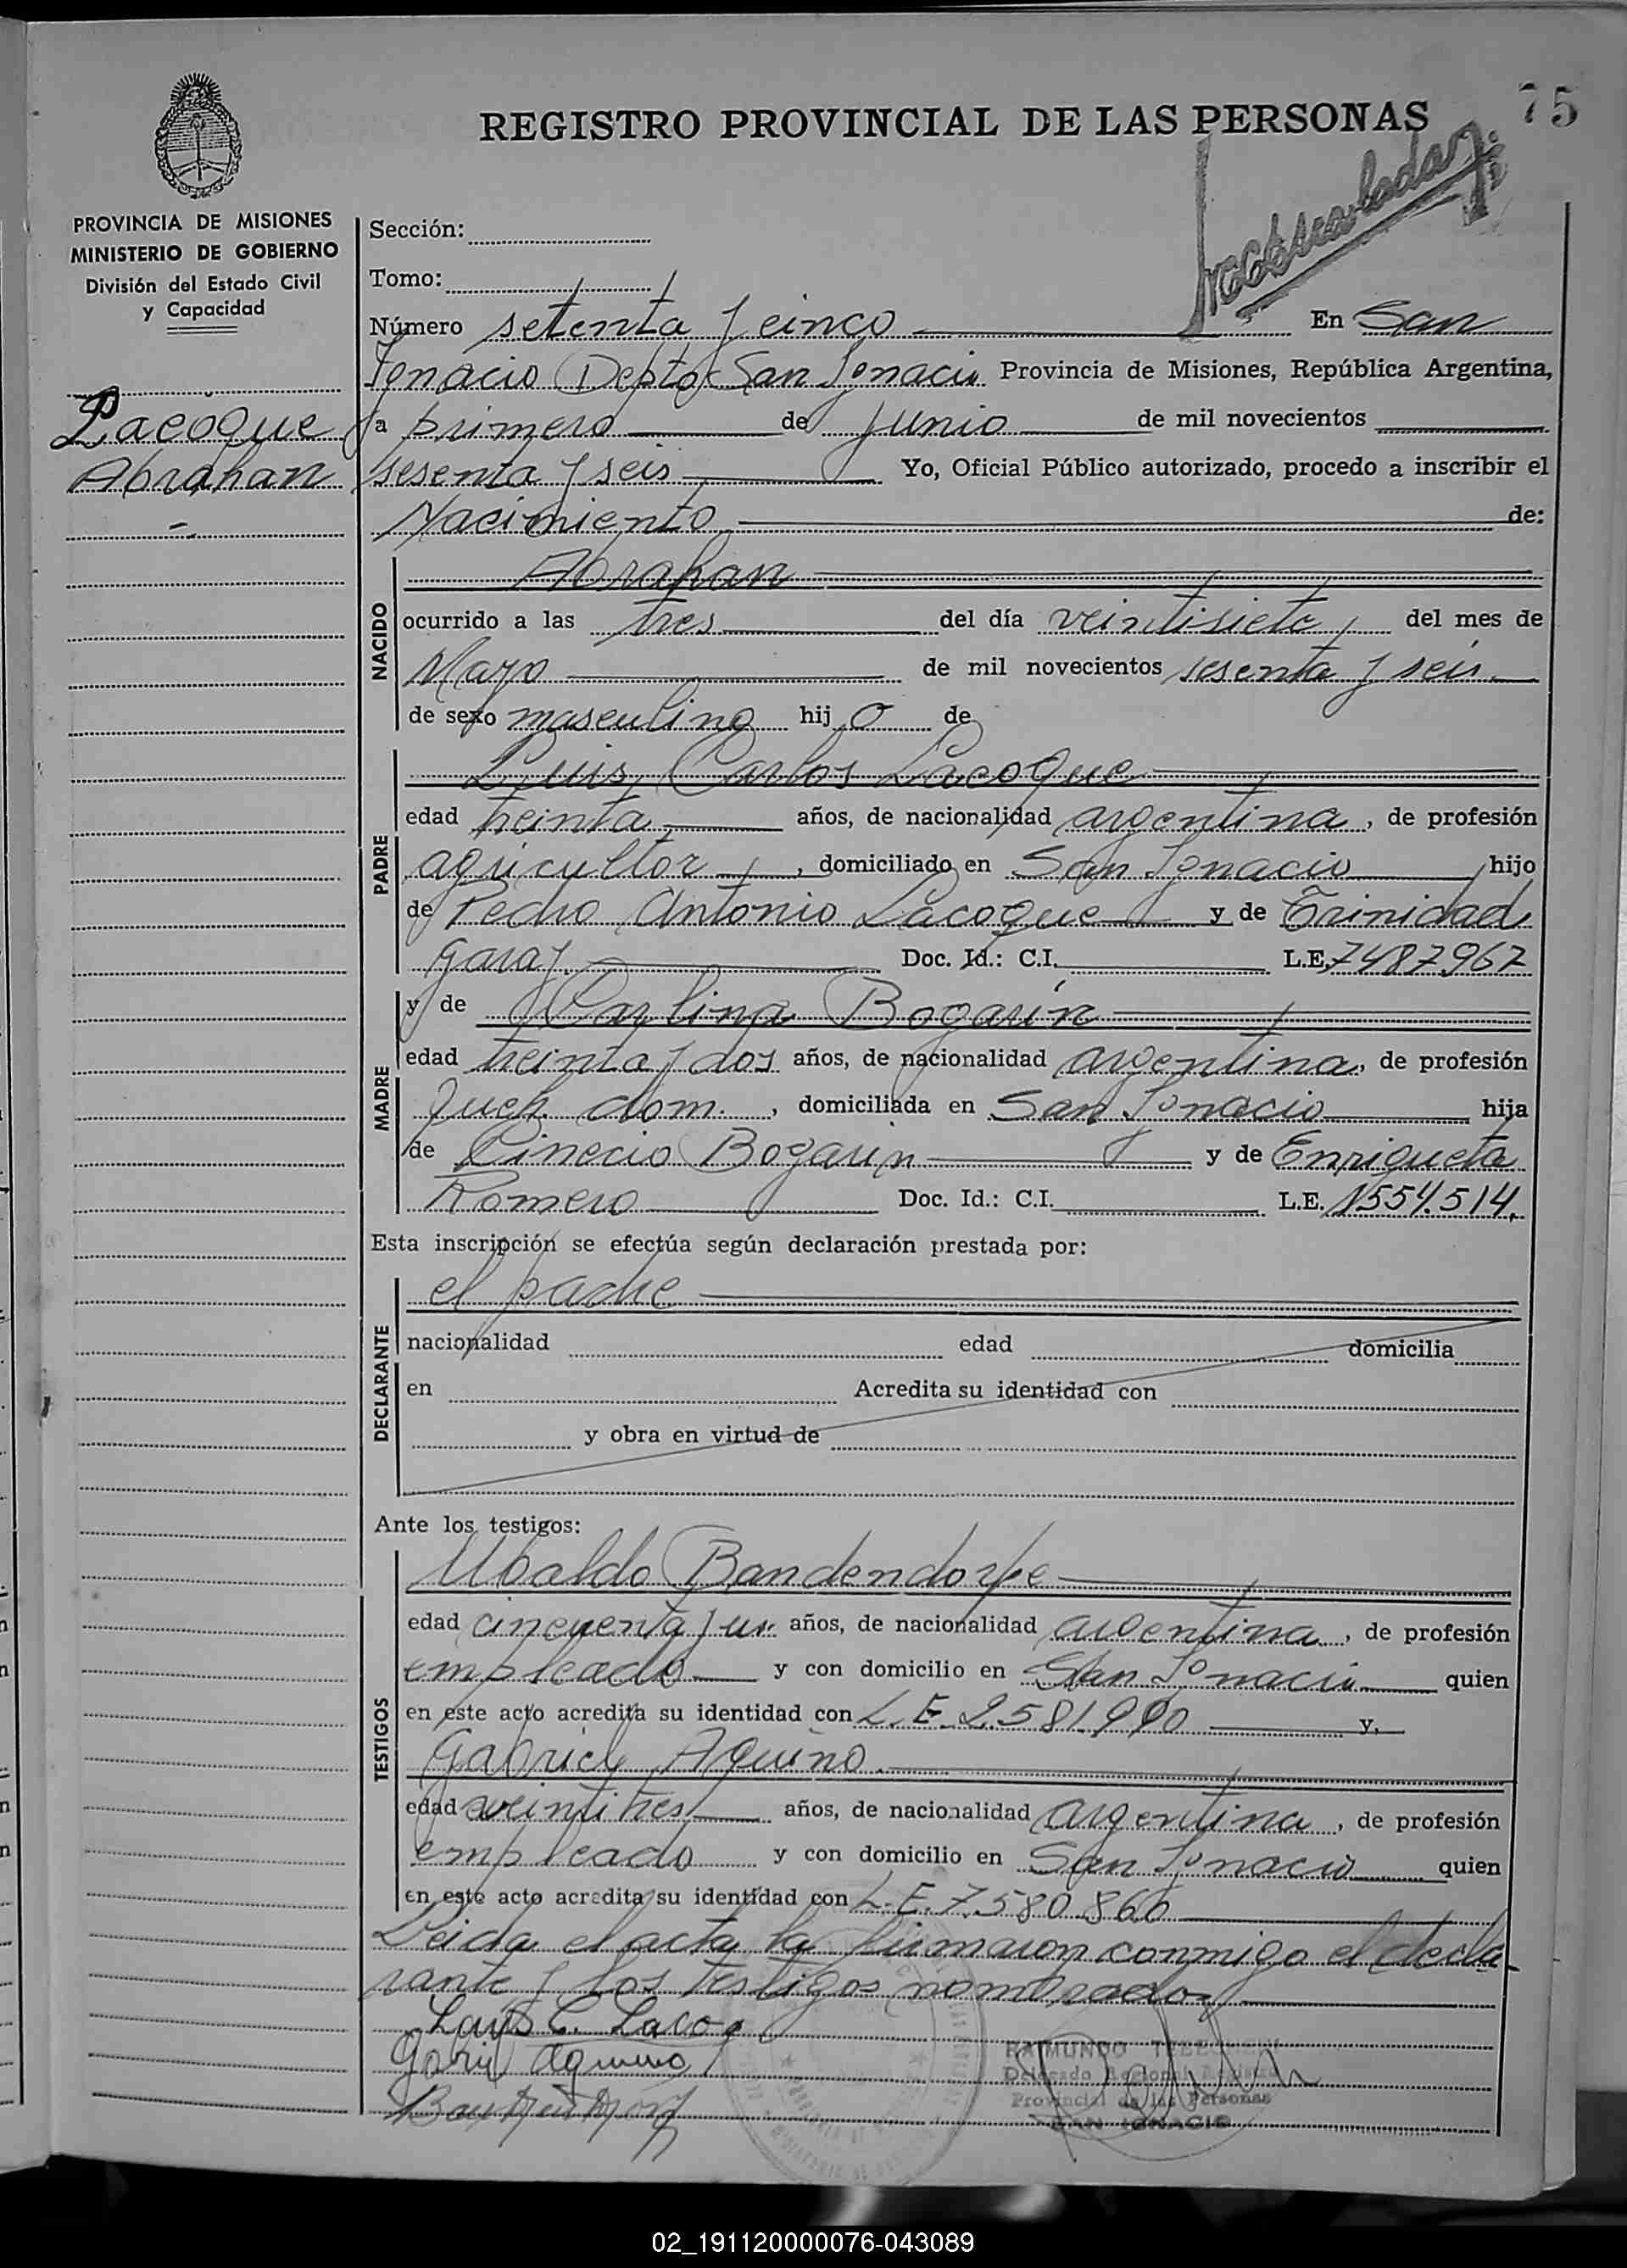 75
REGISTRO PROVINCIAL DE LAS PERSONAS
PROVINCIA DE MISIONES
MINISTERIO DE GOBIERNO
División del Estado Civil
y Capacidad
Lacoque
Abrahan
Sección:
Tomo:
Número setenta y cinco En San
Ignacio Depto San Ignacio Provincia de Misiones, República Argentina,
a primero de junio de mil novecientos
sesenta y seis Yo, Oficial Público autorizado, procedo a inscribir el
Nacimiento de:
NACIDO
Abrahan
ocurrido a las tres del día veintisiete del mes de
Mayo de mil novecientos sesenta y seis
de sexo masculino hijo de
PADRE
Luis Carlos Lacoque
edad treinta años, de nacionalidad argentina, de profesión
agricultor, domiciliado en San Ignacio hijo
de Pedro Antonio Lacoque y de Trinidad
Garay Doc. Id.: C.I. L.E. 7487967
MADRE
y de Carlina Bogarín
edad treinta y dos años, de nacionalidad argentina, de profesión
Queh. dom., domiciliada en San Ignacio hija
de Cinecio Bogarin y de Enriqueta
Romero Doc. Id.: C.I. L.E. 1554.514.
Esta inscripción se efectúa según declaración prestada por:
DECLARANTE
el padre
nacionalidad edad domicilia
en Acredita su identidad con
y obra en virtud de
Ante los testigos:
TESTIGOS
Ubaldo Bandendorpe
edad cincuenta y un años, de nacionalidad argentina, de profesión
empleado y con domicilio en San Ignacio quien
en este acto acredita su identidad con L.E. 2.581.990 y,
Gabriel Aquino
edad veintitres años, de nacionalidad argentina, de profesión
empleado y con domicilio en San Ignacio quien
en este acto acredita su identidad con L.E. 7.580.866
Leida el acta la firmaron conmigo el decla-
rante y los testigos nombrados
Luis C. Lacoq
Gabriel Aquino
RAIMUNDO
Delegado Regional Registro
Provincial de las Personas
SAN IGNACIO
02_191120000076-043089